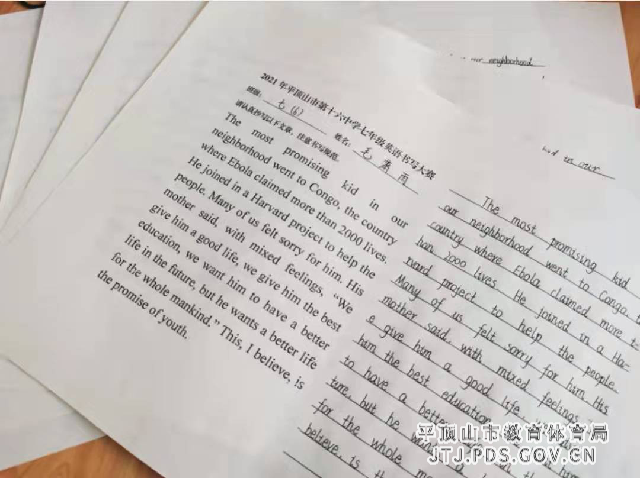 2021年平顶山市第十六中学七年级英语书写大赛
班级: 七(6) 姓名:
请认真抄写以下文章,注意书写规范。
The most promising kid in our
neighborhood went to Congo, the country
where Ebola claimed more than 2000 lives.
He joined in a Harvard project to help the
people. Many of us felt sorry for him. His
mother said, with mixed feelings, “We
give him a good life, we give him the best
education, we want him to have a better
life in the future, but he wants a better life
for the whole mankind.” This, I believe, is
the promise of youth.
neighborhood
The most promising kid
our neighborhood went to Congo, t
country where Ebola claimed more t
han 2000 lives. He joined in a Ha-
rvard project to help the people.
Many of us felt sorry for him. His
mother said, with mixed feelings
e give him a good life,
him the best education
to have a better
ture, but he
for the whole
believe, is th
平顶山市教育体育局
JTJ.PDS.GOV.CN